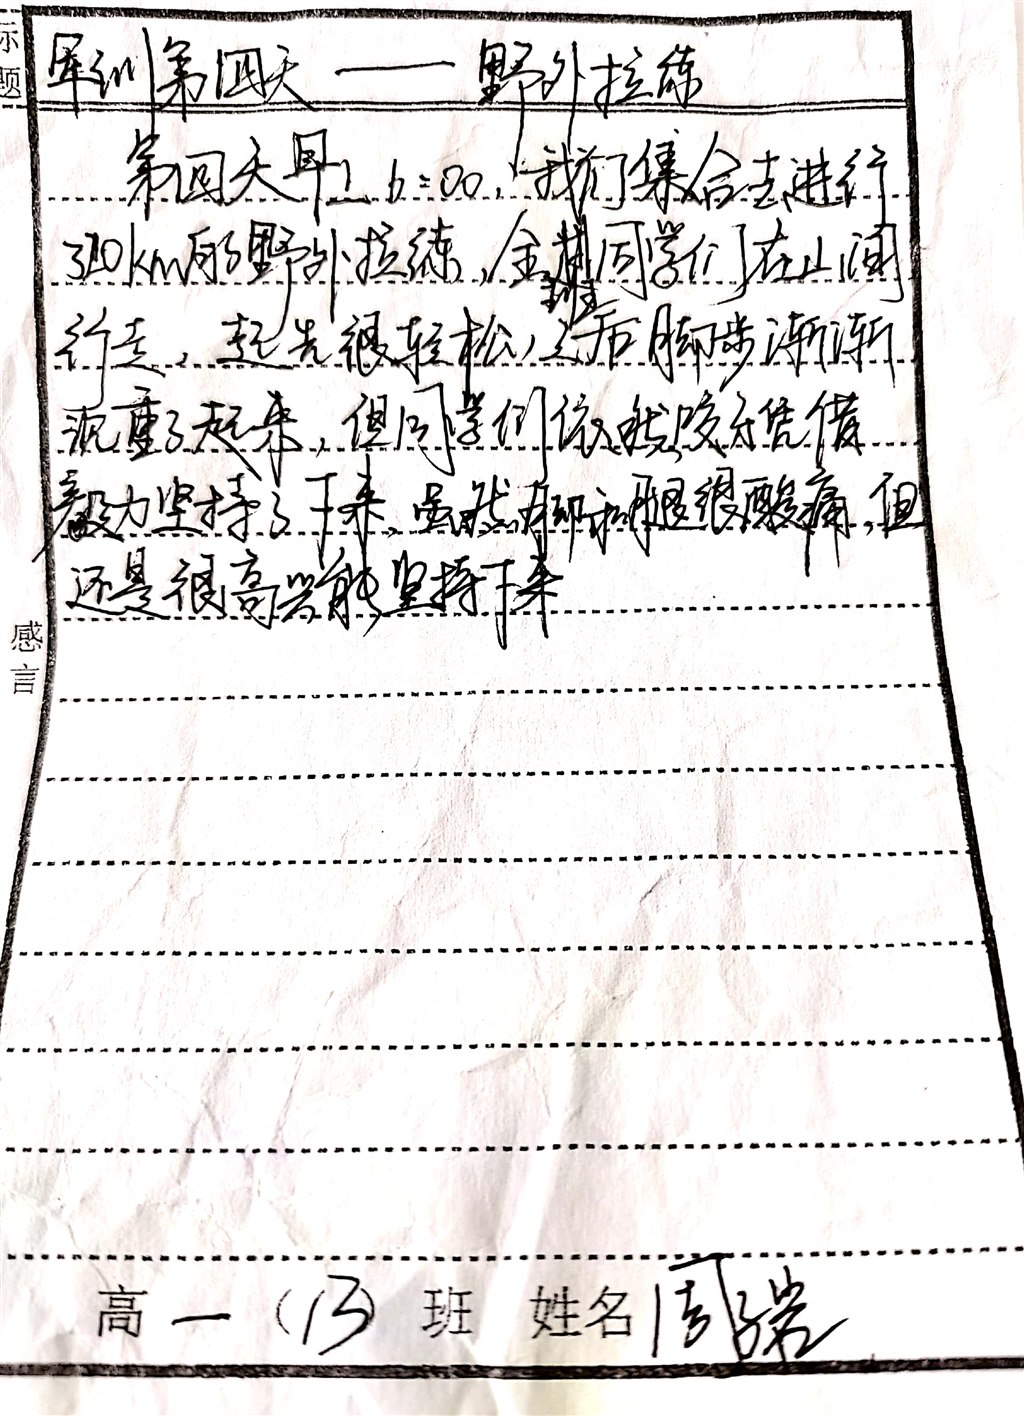 标题
军训第四天——野外拉练
第四天早上6:00,我们集合去进行
30km的野外拉练,全班同学们在山间
行走,起先很轻松,之后脚步渐渐
沉重了起来,但同学们依然咬牙凭借
毅力坚持了下来,虽然脚和腿很酸痛,但
还是很高兴能坚持下来
感言
高一(13)班 姓名 周